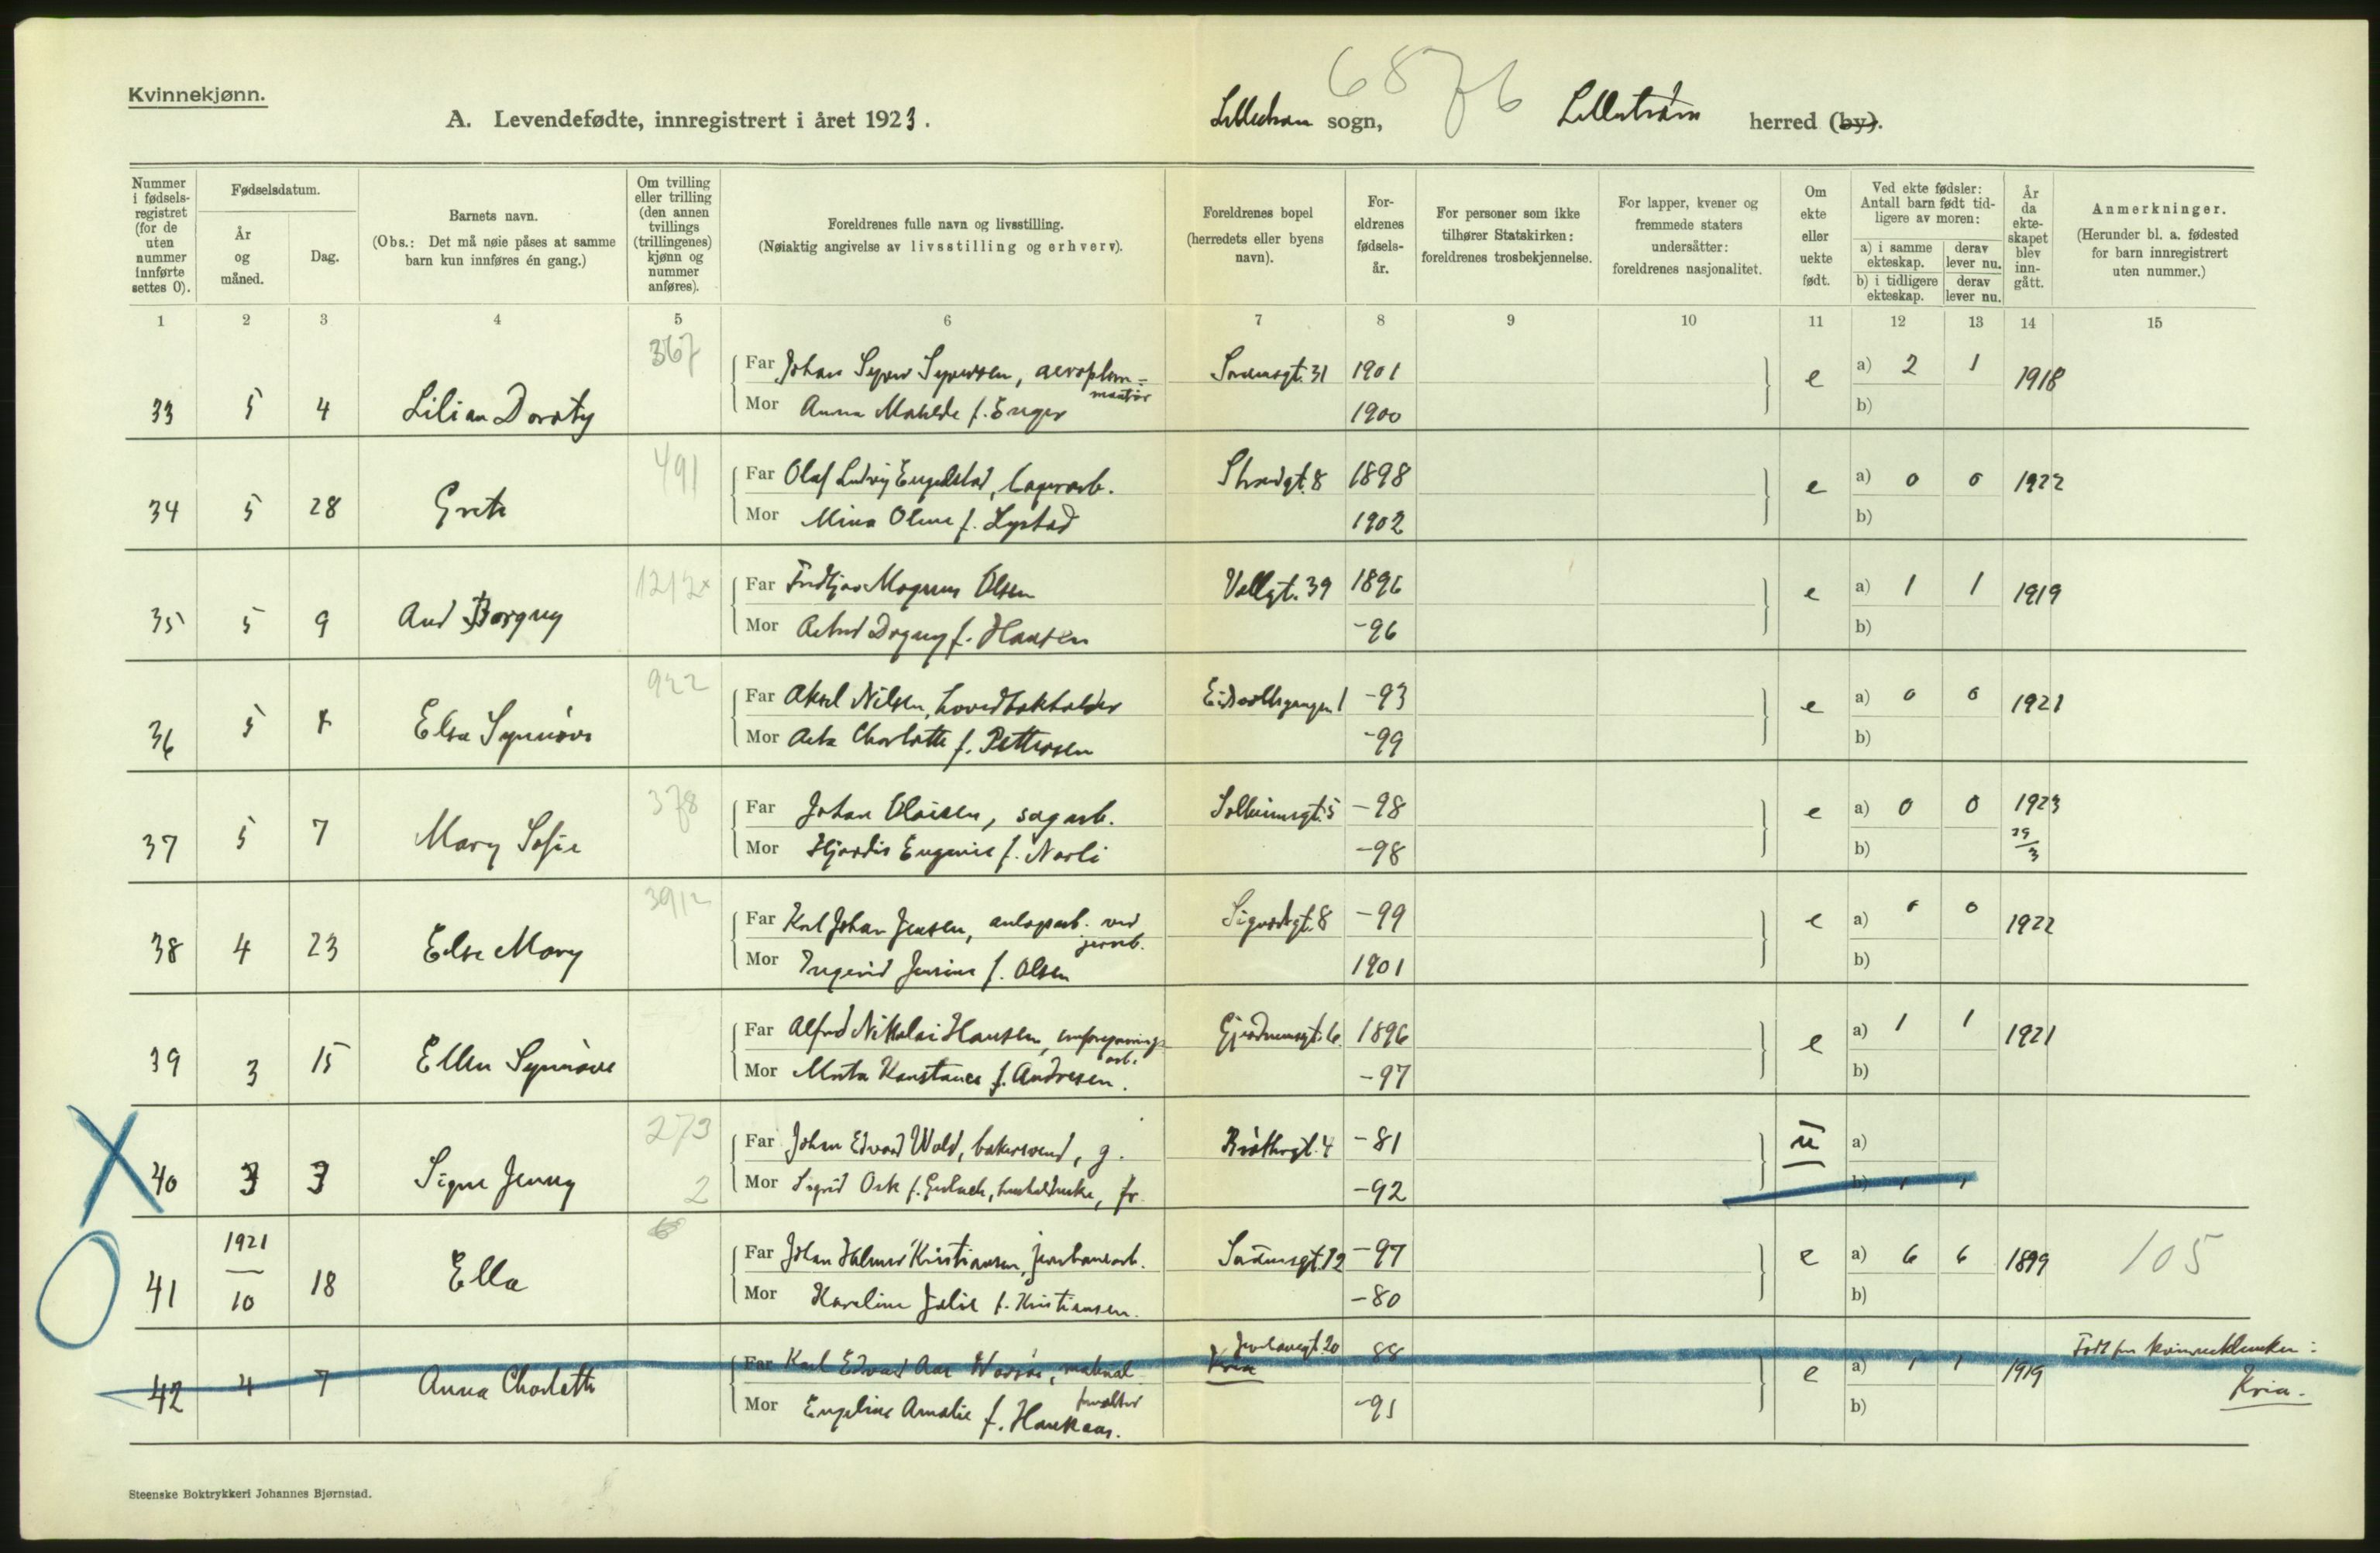 Kvinnekjønn.
6876
A. Levendefødte, innregistrert i året 1923.
sogn, Lillestrøm herred (by).
Nummer i fødsels-registret (for de uten nummer innførte settes 0).
Fødselsdatum.
År og måned.
Dag.
Barnets navn.
(Obs.: Det må nøie påses at samme barn kun innføres én gang.)
Om tvilling eller trilling (den annen tvillings (trillingenes) kjønn og nummer anføres).
Foreldrenes fulle navn og livsstilling.
(Nøiaktig angivelse av livsstilling og erhverv).
Foreldrenes bopel (herredets eller byens navn).
For-eldrenes fødsels-år.
For personer som ikke tilhører Statskirken: foreldrenes trosbekjennelse.
For lapper, kvener og fremmede staters undersåtter: foreldrenes nasjonalitet.
Om ekte eller uekte født.
Ved ekte fødsler: Antall barn født tid-ligere av moren:
a) i samme ekteskap.
derav lever nu.
b) i tidligere ekteskap.
derav lever nu.
År da ekte-skapet blev inn-gått.
Anmerkninger.
(Herunder bl. a. fødested for barn innregistrert uten nummer.)
1 2 3 4 5 6 7 8 9 10 11 12 13 14 15
367
Far Johan Syver Syversen, aeroplan- 31 1901 a) 2 1
33 5 4 Lilian Doroty Mor Anna Mathilde f. Enger montør 1900 e b) 1918
491
Far Olaf Ludvig Engelstad, lagerarb. Strandgt. 8 1898 a) 0 0 1922
34 5 28 Grete Mor Mina Oline f. Lystad 1902 e b)
1212x
Far Fridtjov Magnus Olsen Vollgt. 39 1896 a) 1 1 1919
35 5 9 Aud Borgny Mor Astrid Dagny f. Hansen -96 e b)
922
Far Aksel Nilsen, hovedbokholder Eidsvollsgangen 1 -93 a) 0 0 1921
36 5 Elsa Synnöve Mor Charlotte f. Pettersen -99 e b)
378
Far Johan Olaisen, sagarb. Solheimsgt. 5 -98 a) 0 0 1923
37 5 7 Mary Sofie Mor Hjørdis Eugenie f. Norli -98 e b) 29/3
3912
Far Karl Johan Jensen, anlægsarb. ved Sigurdsgt. 8 -99 a) 0 0
38 4 23 Else Mary jernb. Mor Ingerid Jensine f. Olsen 1901 e b) 1922
Far Alfred Nikolai Hansen, arb. Gjerdrumsgt. 6 1896 a) 1 1 1921
39 3 15 Ellen Synnöve Mor Marta Konstance f. Andresen. -97 e b)
273
Far Johan Edvard Wold, bakersvend, g. 4 -81 u a)
40 3 3 Signe Jenny 2 Mor Sigrid f. fr. -92 b)
1921
Far Johan Hilmar Kristiansen, jernbanearb. 12 -97 a) 6 6 1899 105
41 10 18 Ella Mor Karoline Julie f. Kristiansen. -80 e b)
Far Karl Edvard Aas material- Kria 20 88 a) 1 1 Født
42 4 7 Anna Charlotte forvalter Mor Engeline Amalie f. Haukaas. -91 e b) 1919 Kria.
Steenske Boktrykkeri Johannes Bjørnstad.